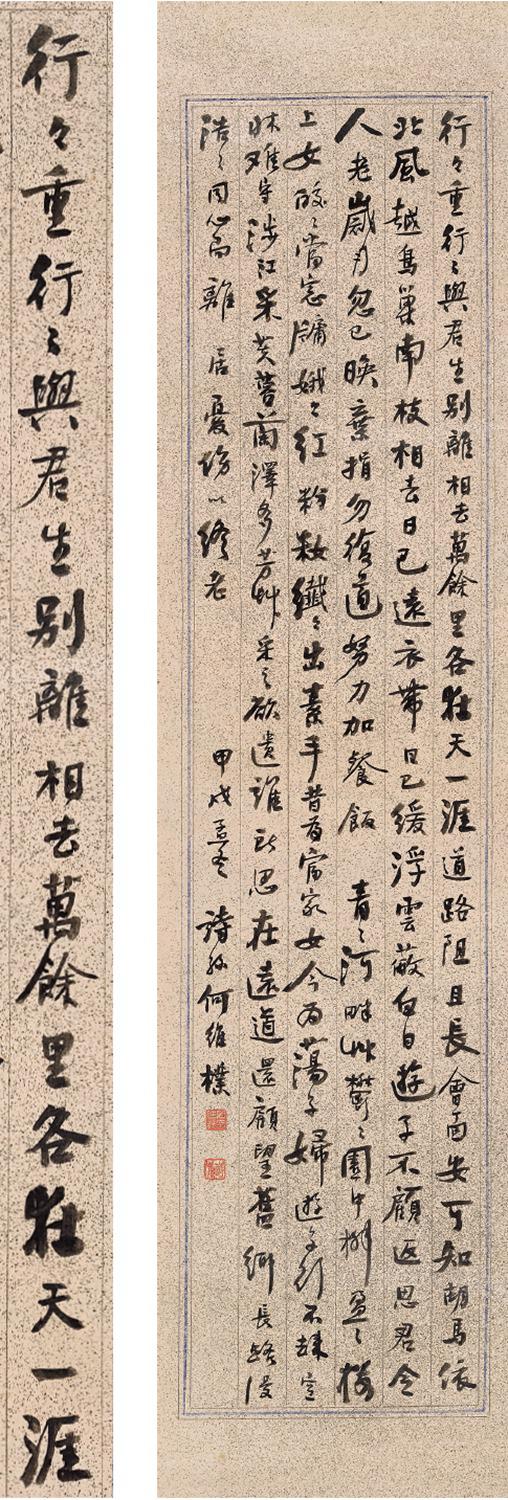 行々重行々與君生別離相去萬餘里各在天一涯道路阻且長會面安可知胡馬依
北風越鳥巢南枝相去日已遠衣帶日已緩浮雲蔽白日遊子不顧返思君令
人老歲月忽已晚棄捐勿復道努力加餐飯 青々河畔艸鬱々園中柳盈々樓
上女皎々當窗牖娥々紅粉妝纖々出素手昔為倡家女今為蕩子婦遊子行不歸空
牀難守涉江采芙蓉蘭澤多芳艸采之欲遺誰所思在遠道還顧望舊鄉長路漫
浩々同心而離居憂傷以終老 甲戌孟冬 詩孫何維樸
行々重行々與君生別離相去萬餘里各在天一涯